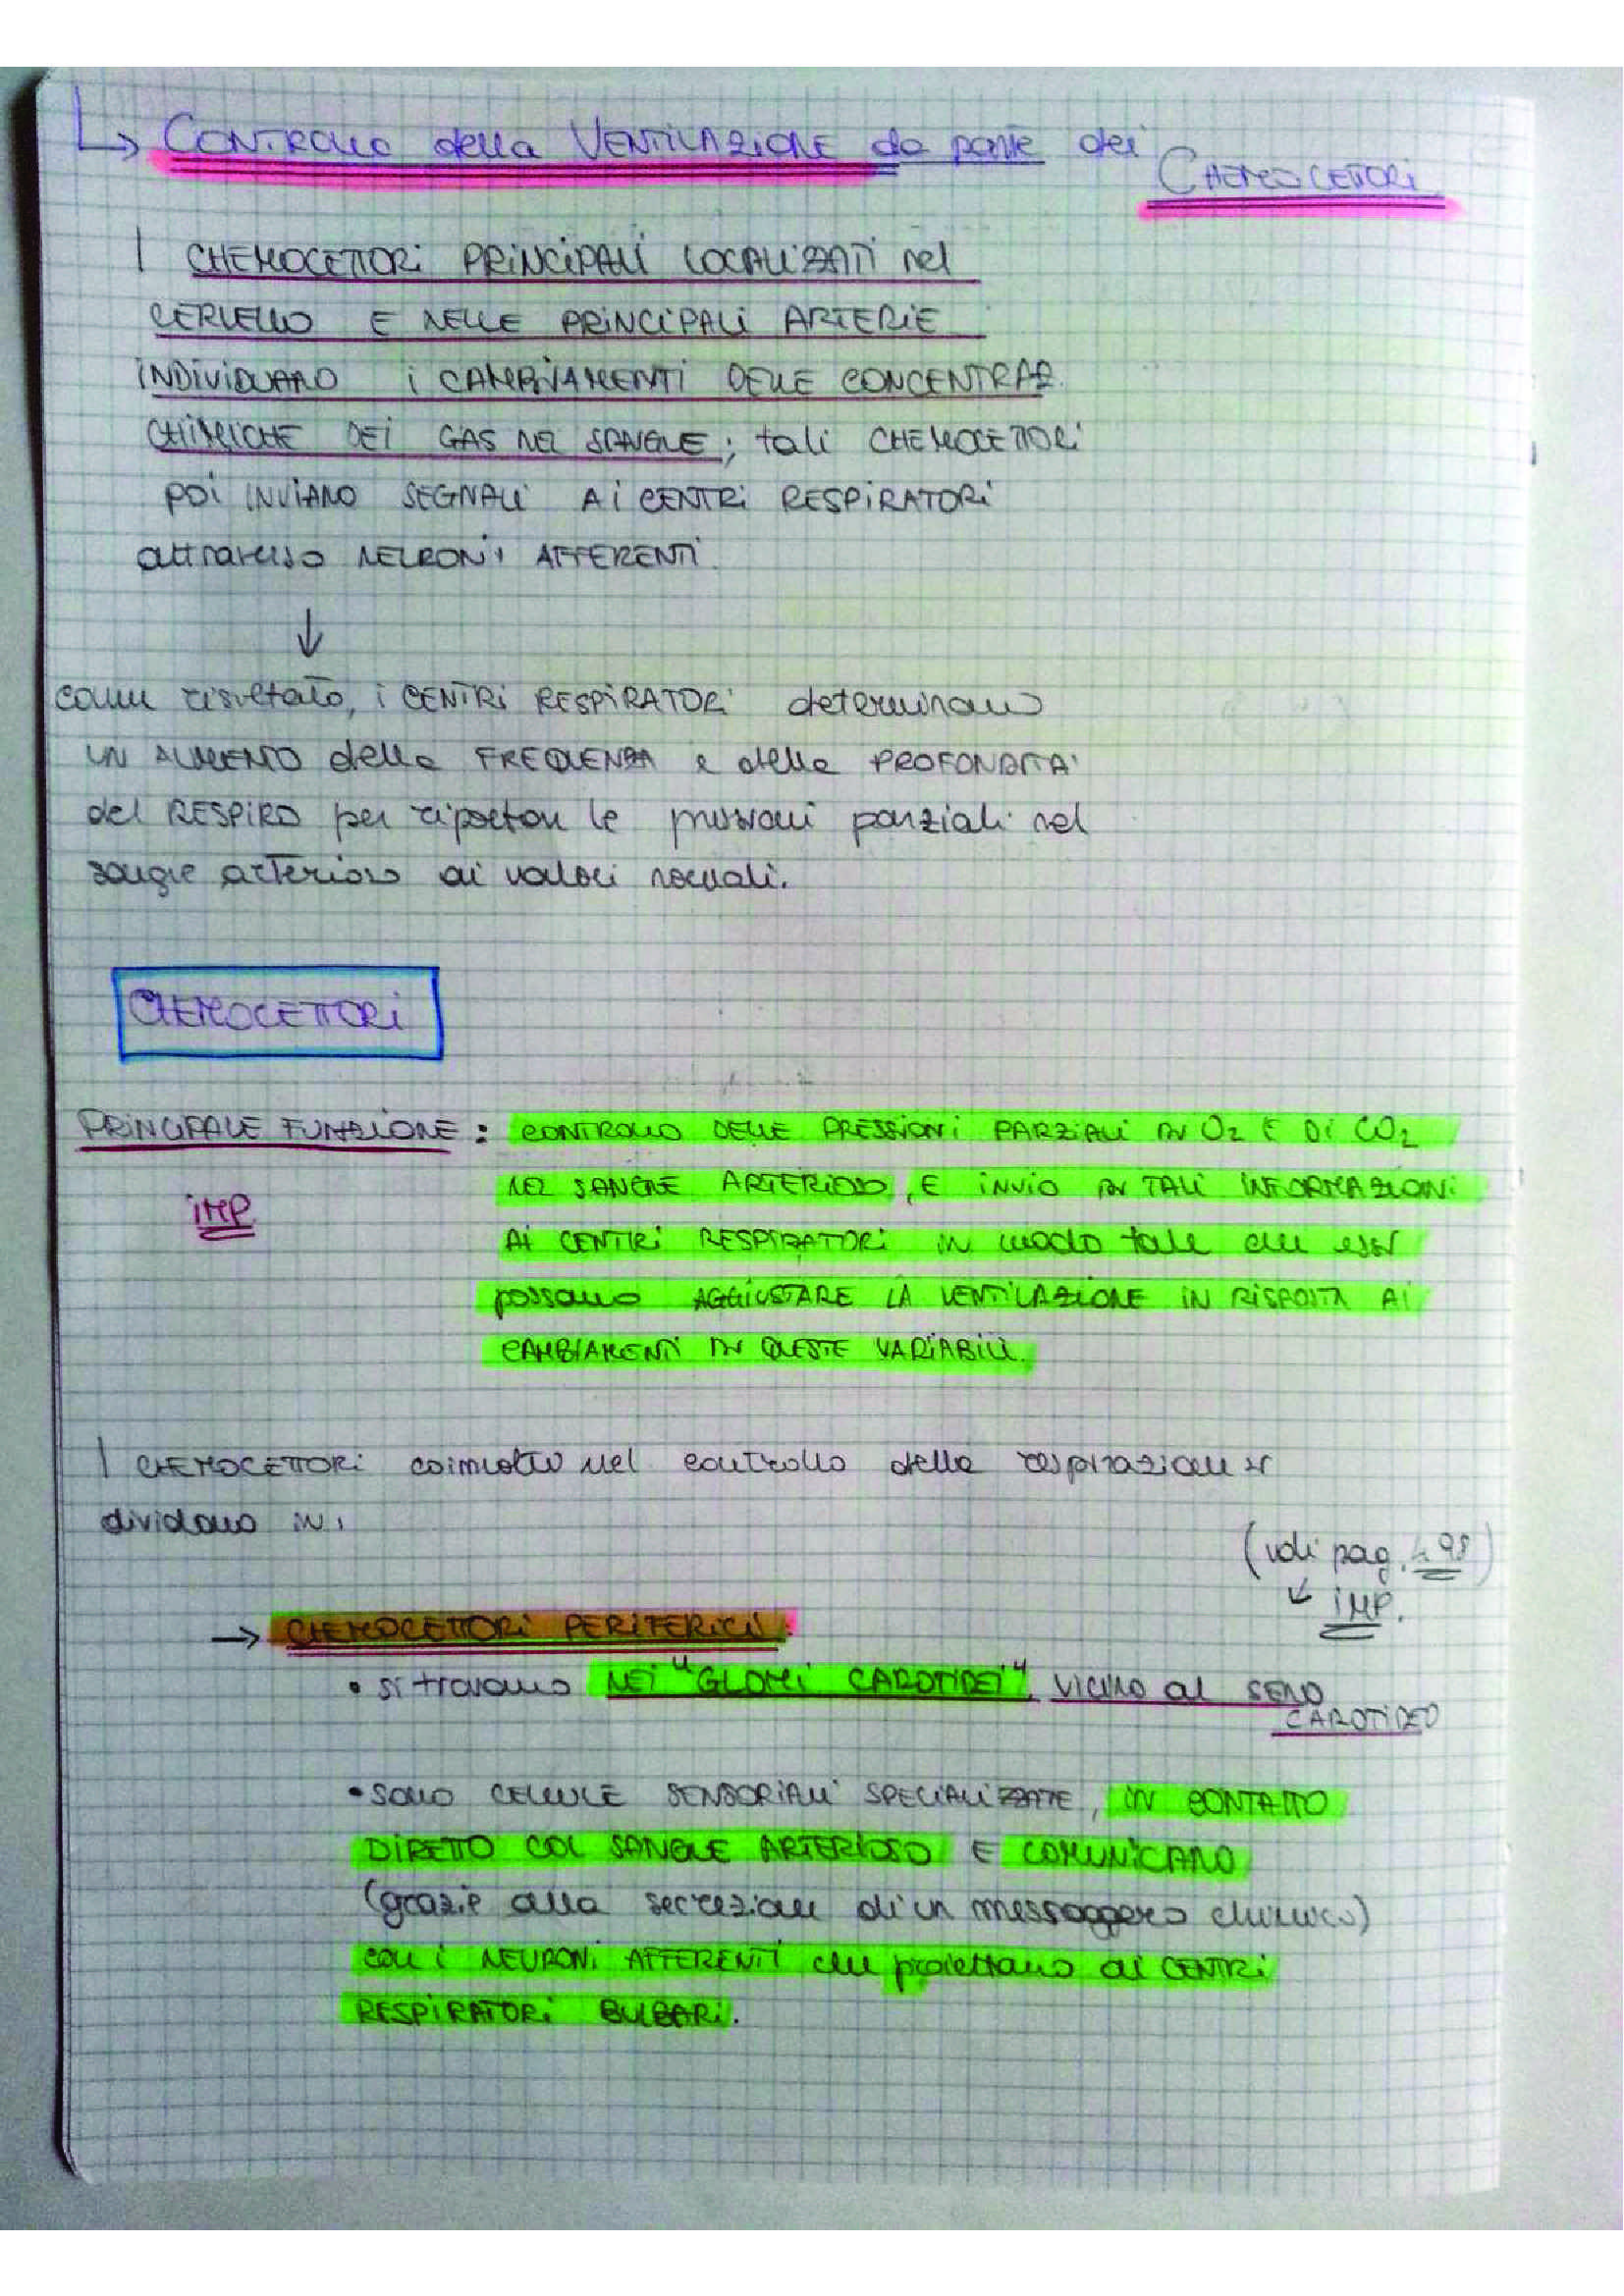 ↳ CONTROLLO della VENTILAZIONE da parte dei
CHEMOCETTORI
I CHEMOCETTORI PRINCIPALI LOCALIZZATI nel
CERVELLO E NELLE PRINCIPALI ARTERIE
INDIVIDUANO i CAMBIAMENTI DELLE CONCENTRAZ.
CHIMICHE DEI GAS NEL SANGUE; tali CHEMOCETTORI
POI INVIANO SEGNALI AI CENTRI RESPIRATORI
attraverso NEURONI AFFERENTI.
↓
come risultato, i CENTRI RESPIRATORI determinano
UN AUMENTO della FREQUENZA e della PROFONDITA'
del RESPIRO per riportare le pressioni parziali nel
sangue arterioso ai valori normali.
CHEMOCETTORI
PRINCIPALE FUNZIONE: CONTROLLO DELLE PRESSIONI PARZIALI DI O2 E DI CO2
NEL SANGUE ARTERIOSO, E INVIO DI TALI INFORMAZIONI
IMP
AI CENTRI RESPIRATORI IN modo tale che essi
possano AGGIUSTARE LA VENTILAZIONE IN RISPOSTA AI
CAMBIAMENTI DI QUESTE VARIABILI.
I CHEMOCETTORI coinvolti nel controllo della respirazione si
dividono in:
(vedi pag. 498)
↙ IMP.
→ CHEMOCETTORI PERIFERICI:
• si trovano NEI "GLOMI CAROTIDEI", VICINO al SENO
CAROTIDEO
• SONO CELLULE SENSORIALI SPECIALIZZATE, IN CONTATTO
DIRETTO COL SANGUE ARTERIOSO E COMUNICANO
(grazie alla secrezione di un messaggero chimico)
con i NEURONI AFFERENTI che proiettano ai CENTRI
RESPIRATORI BULBARI.